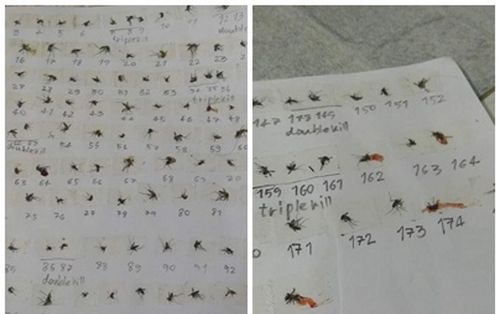 3 4 5 6 7 8 9 10 11 12 13
triplekill double
16 17 18 19 20 21 22 23
27 28 29 30 31 32 33 34 35 36
triplekill
40 41 42 43 44 45 46 47 48
doublekill 54 55 56 57 58 59 60
63 64 65 66 67 68 69 70
75 76 77 78 79 80 81
85 86 87 88 89 90 91 92
doublekill
147 150 151 152
doublekill
159 160 161 162 163 164
triplekill
171 172 173 174